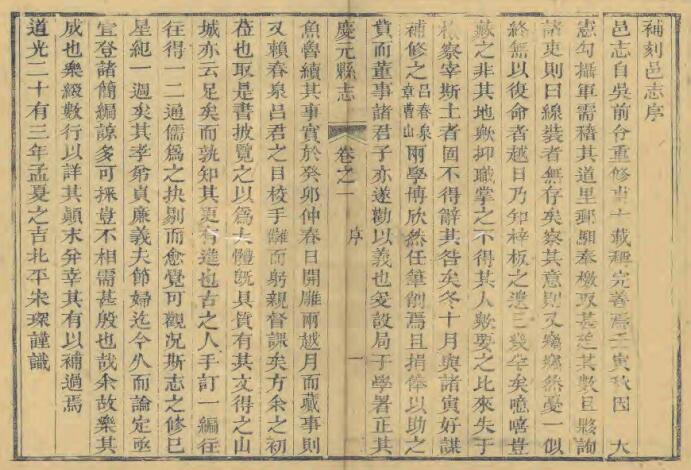 補刻邑志序
邑志自吳前令重修廿十載稱完善焉壬寅秋因 大
憲勾攝軍需稽其道里郵顧奉檄取甚急其數且夥詢
諸吏則曰線裝者無存矣察其意則又竊竊然憂一似
終無以復命者越日乃知梓板之遺亡幾罕矣噫嘻豈
藏之非其地歟抑職掌之不得其人歟要之比來失于
檢察宰斯土者固不得辭其咎矣冬十月與諸寅好謀
補修之呂春泉章曹山兩學博欣然任筆削焉且捐俸以助之
貲而董事諸君子亦遂勸以義也爰設局于學署正其
慶元縣志 卷之一 序 一
魚魯續其事實於癸卯仲春日開雕兩越月而蕆事則
又賴春泉呂君之目校手讎而躬親督課矣方余之初
蒞也取是書披覽之以為大體既具質有其文得之山
城亦云足矣而孰知其更有進也古之人手訂一編往
往得一二通儒為之抉剔而愈覺可觀況斯志之修已
星紀一週矣其孝弟貞廉義夫節婦迄今久而論定亟
宜登諸簡編諒多可採豈不相需甚殷也哉余故樂其
成也樂綴數行以詳其顛末分幸其有以補過焉
道光二十有三年孟夏之吉北平宋琛謹識